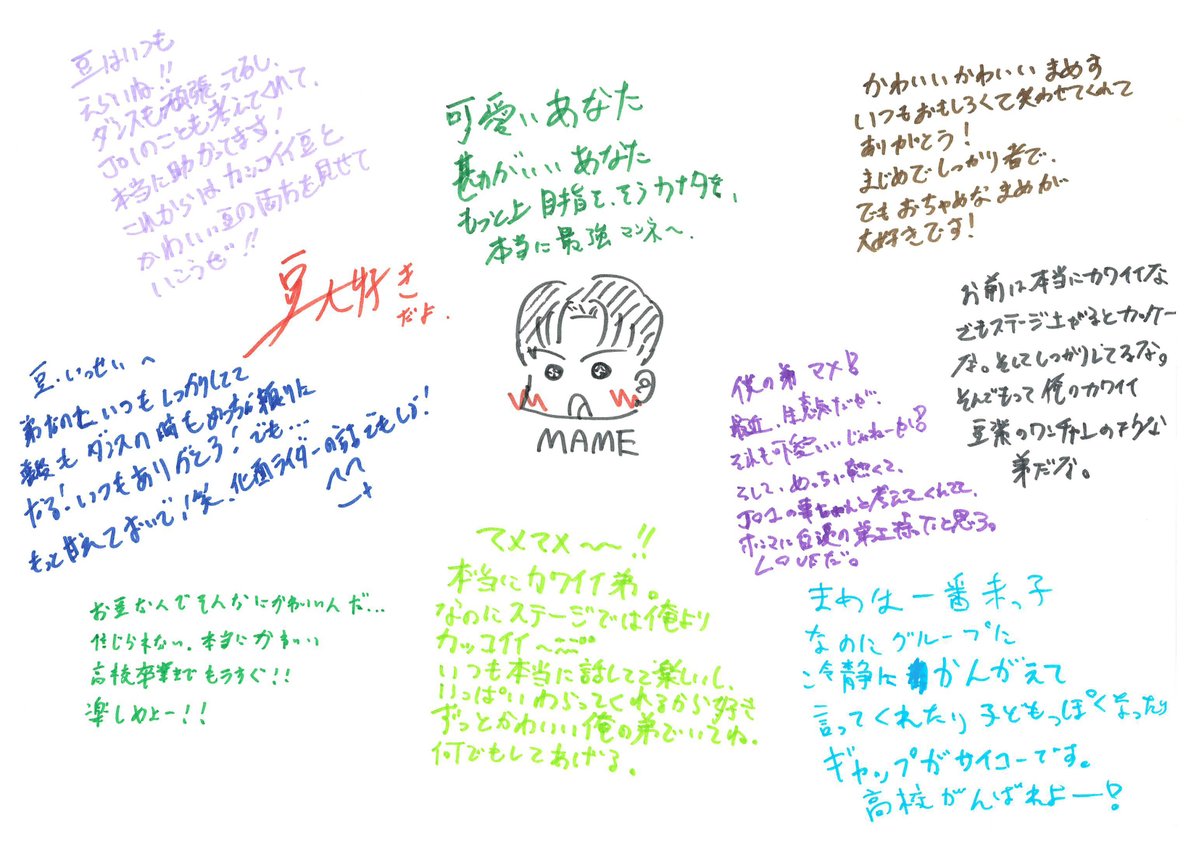 豆はいつも
えらいね!!
ダンスも頑張ってるし、
JO1のことも考えてくれて、
本当に助かってます!
これからはカッコイイ豆と
かわいい豆の両方を見せて
いこうぜ!!
可愛いあなた
勘がいいあなた
もっと上目指を、そうカナタを、
本当に最強マンネ〜.
かわいいかわいいまめす
いつもおもしろくて笑わせてくれて
ありがとう!
まじめでしっかり者で、
でもおちゃめなまめが
大好きです!
豆大好き
だよ.
お前は本当にカワイイな
でもステージ上がるとカッケー
な。そしてしっかりしてるな。
そんでもって俺のカワイイ
豆柴のワンチャンのような
弟だな。
MAME
豆・いっせい へ
弟なのに、いつもしっかりしてて
ダンスの時もめっちゃ頼りに
なる!いつもありがとう!でも...
もっと甘えておいで!笑、仮面ライダーの話でもしよ!
僕の弟 マメ!
最近、生意気だが、
それも可愛いじゃねーか!
そして、めっちゃ熱くて、
JO1の事ちゃんと考えてくれてて、
ホンマに自慢の弟を持ったと思う。
LOVEだ。
お豆なんでそんなにかわいいんだ...
信じられない。本当にかわいい
高校卒業までもうすぐ!!
楽しめよー!!
マメマメ〜〜!!
本当にカワイイ弟。
なのにステージでは俺より
カッコイイ〜
いつも本当に話してて楽しいし、
いっぱいわらってくれるから好き
ずっとかわいい俺の弟でいてね、
何でもしてあげる。
まめは一番末っ子
なのにグループに
冷静にかんがえて
言ってくれたり子どもっぽくなったり
ギャップがサイコーです。
高校がんばれよー!